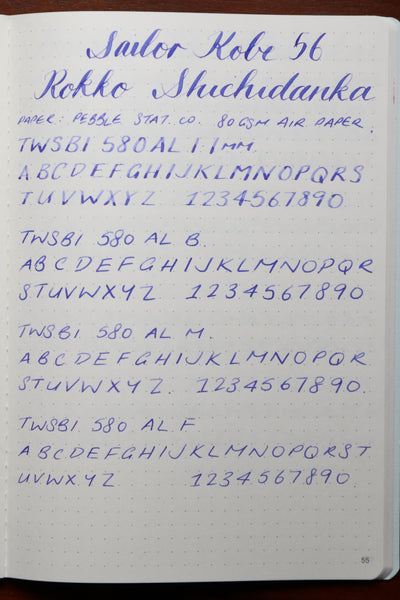 Sailor Kobe 56
Rokko Shichidanka
PAPER: PEBBLE STAT. CO. 80GSM AIR PAPER.
TWSBI 580AL 1.1MM.
ABCDEFGHIJKLMNOPQRS
TUVWXYZ 1234567890
TWSBI 580 AL B.
ABCDEFGHIJKLMNOPQR
STUVWXYZ 1234567890
TWSBI 580 AL M.
ABCDEFGHIJKLMNOPQR
STUVWXYZ. 1234567890.
TWSBI 580 AL F.
ABCDEFGHIJKLMNOPQRST
UVWXYZ 1234567890.
55